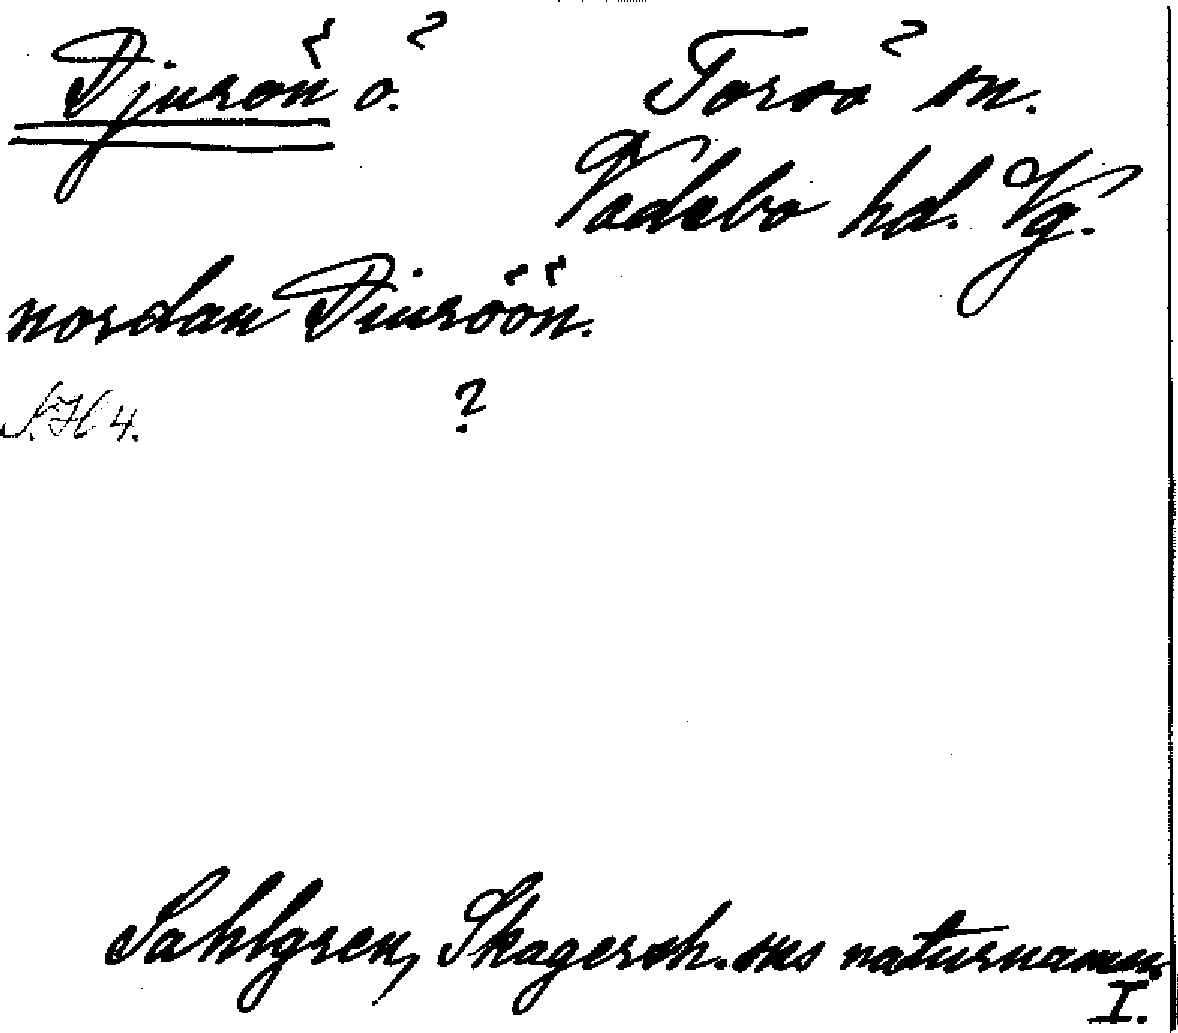 Djurön ö. Torsö sn.
Vadsbo hd. Vg.
nordan Diuröön.
S.H 4. ?
Sahlgren, Skagersh. sns naturnamn
I.